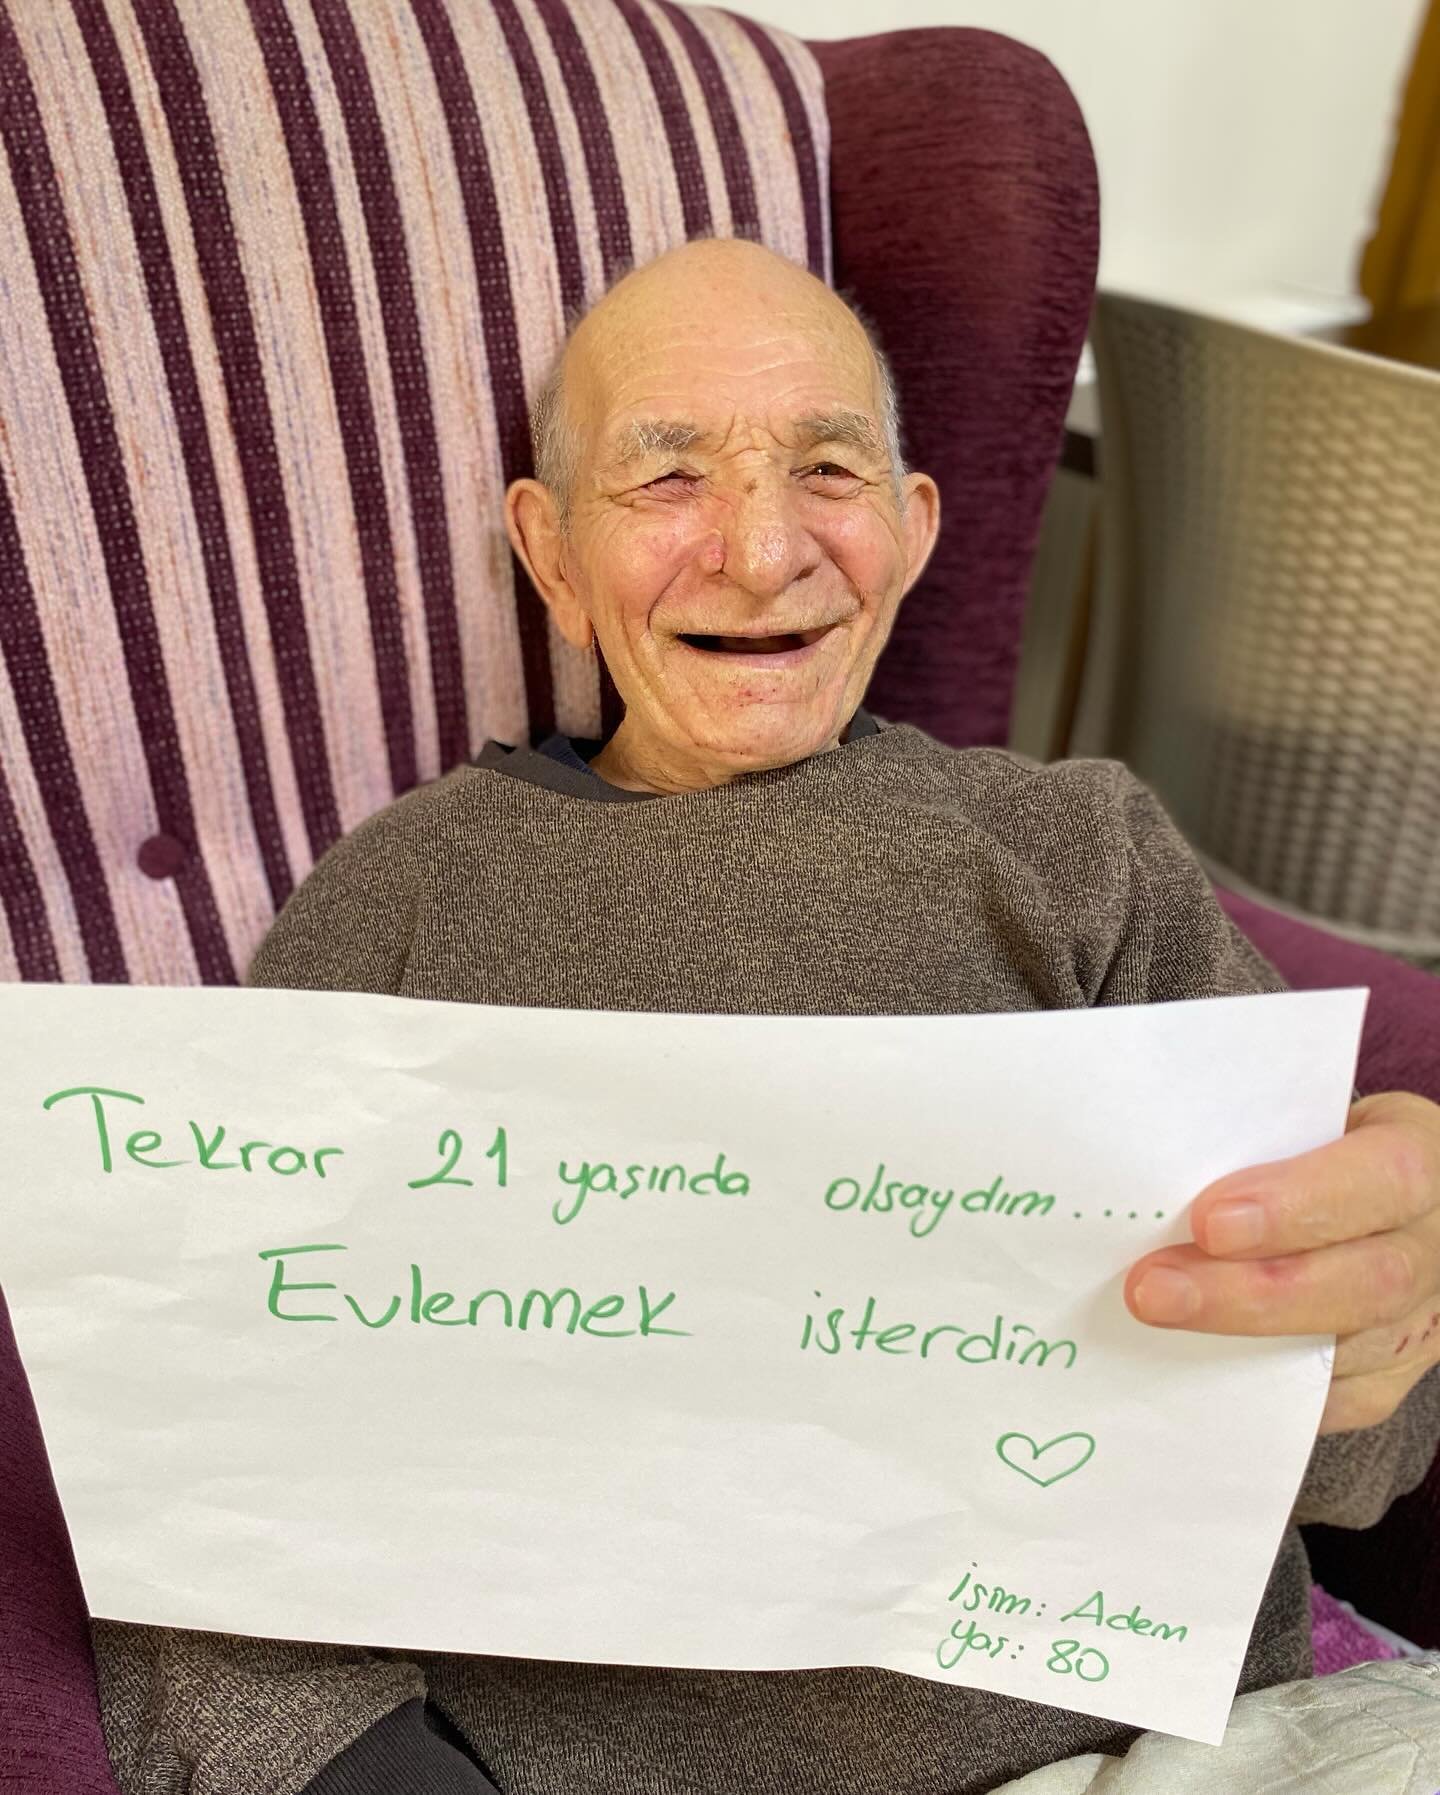 Tekrar 21 yaşında olsaydım.....
Evlenmek isterdim
isim: Adem
yaş: 80